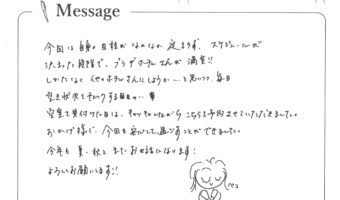 Message
今回は自身の日程がなかなか定まらず、スケジュールが
決まった段階で、プラザホテルさんが満室!!
しかたなく他のホテルさんにしようか…と思いつつ、毎日
空き状況をチェックする日々…
空室を見付けた日は、そわそわしながらこちらを予約させていただきました。
おかげ様で、今回も安心して過ごすことができました。
今年も夏、秋とまたお世話になります!
よろしくお願いします!!
ペコ